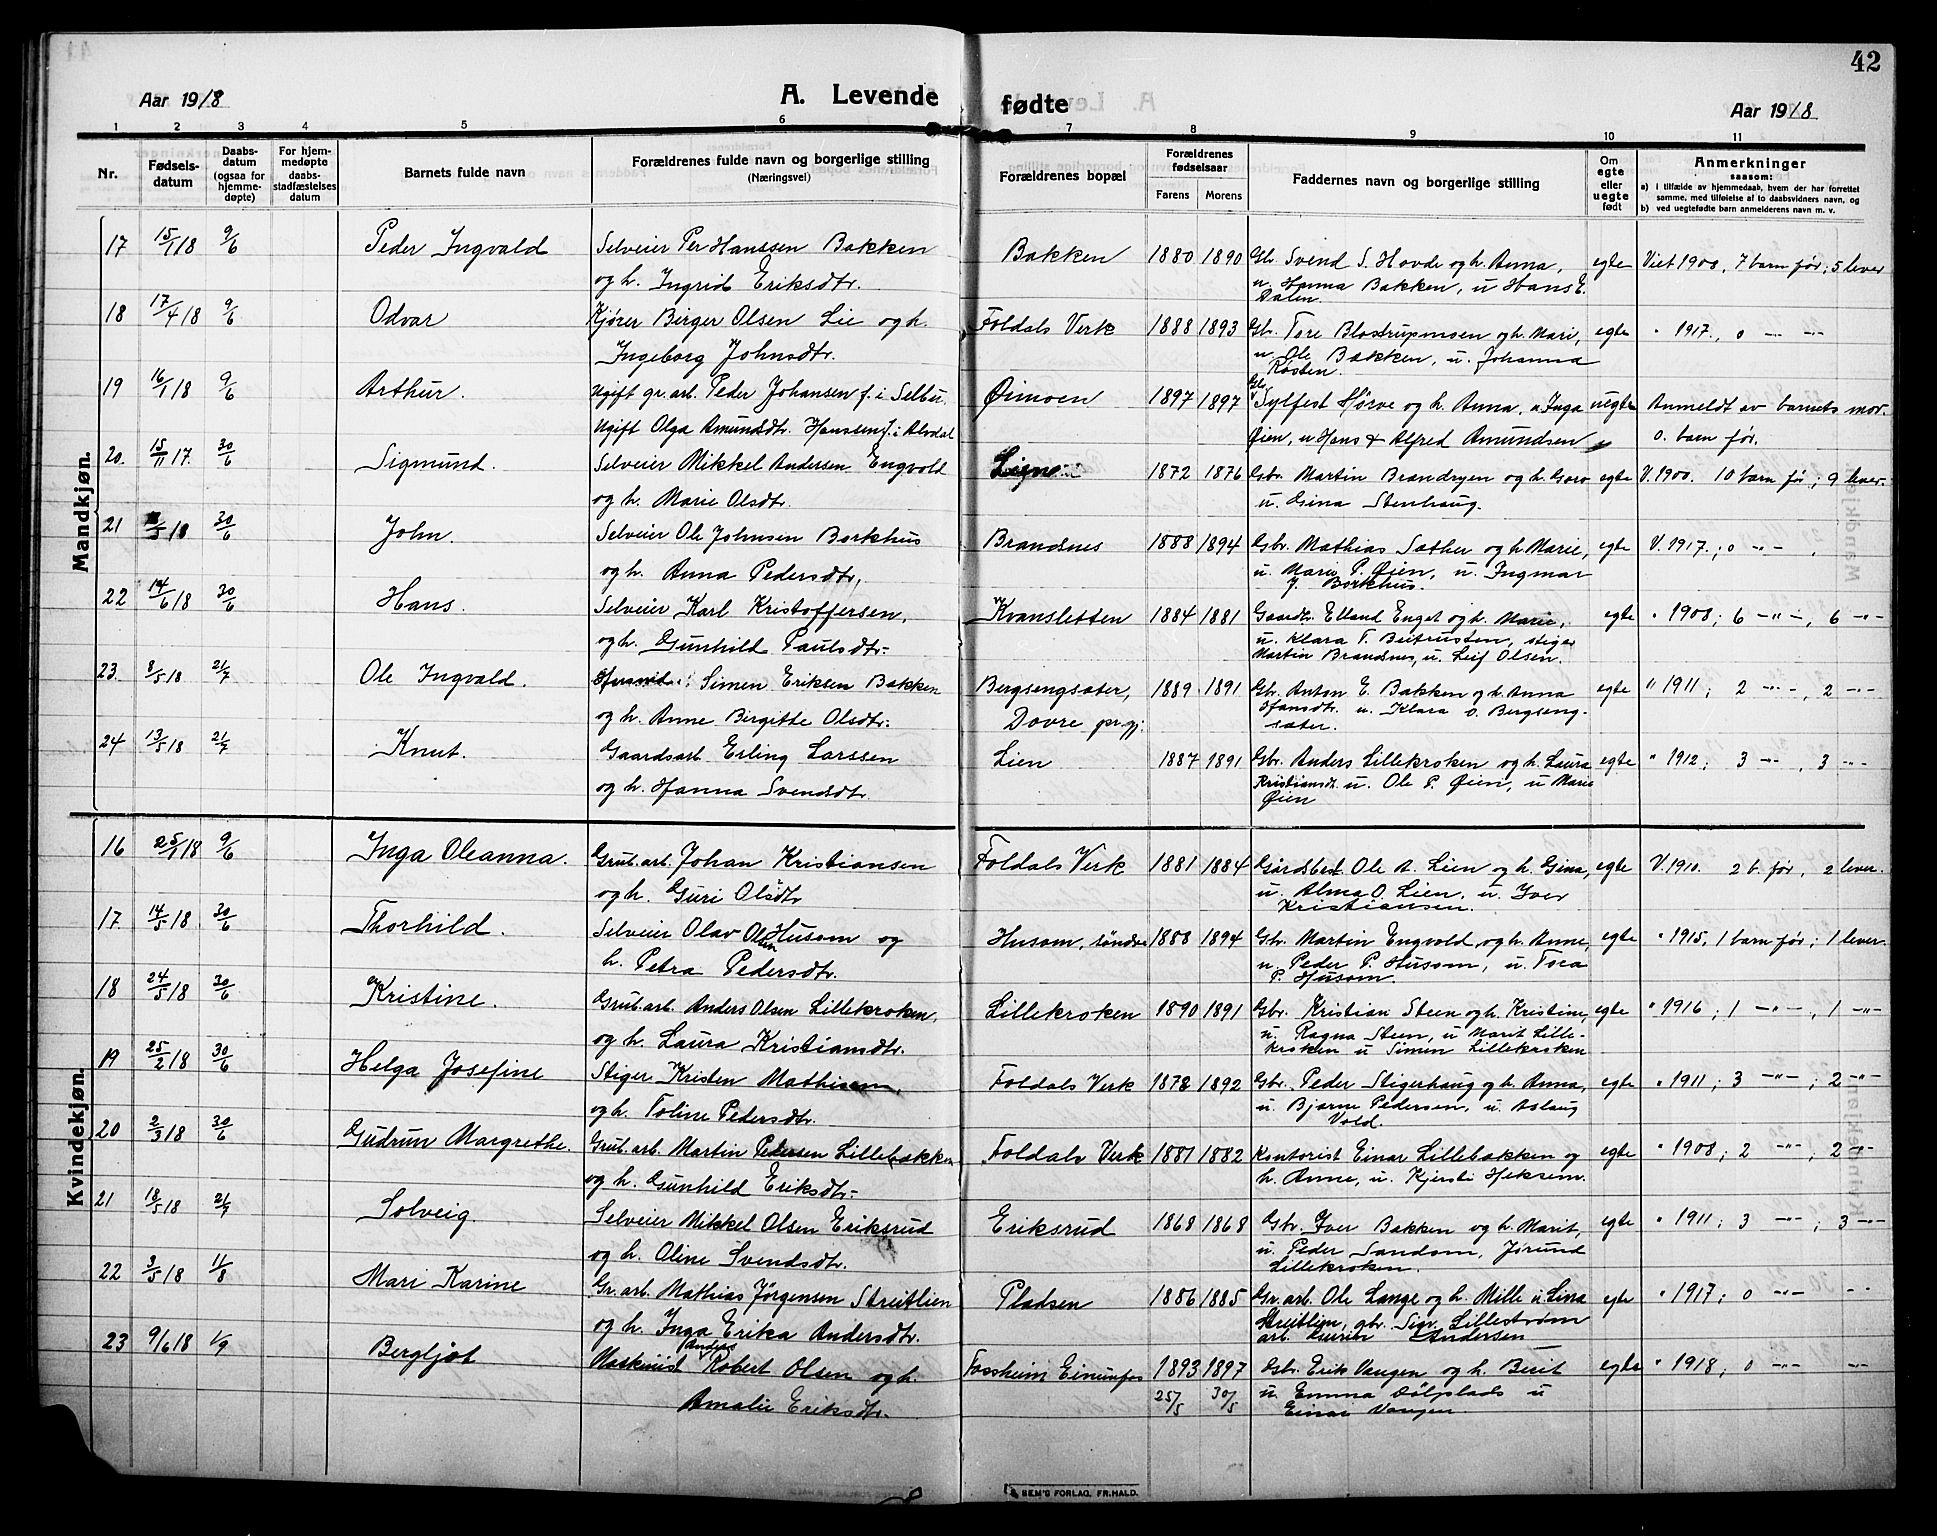 42
Aar 1918
A. Levende fødte
Aar 1918
1 2 3 4 5 6 7 8 9 10 11
Nr.
Fødsels-
datum
Daabs-
datum
(ogsaa for
hjemme-
døpte)
For hjem-
medøpte
daabs-
stadfæstelses
datum
Barnets fulde navn
Forældrenes fulde navn og borgerlige stilling
(Næringsvei)
Forældrenes bopæl
Forældrenes
fødselsaar
Farens Morens
Faddernes navn og borgerlige stilling
Om
egte
eller
uegte
født
Anmerkninger
saasom:
a) i tilfælde av hjemmedaab, hvem der har forrettet
samme, med tilføielse af to daabsvidners navn, og
b) ved uegtefødte barn anmelderens navn m. v.
Mandkjøn.
17 15/1 18 9/6 Peder Ingvald Selveier Per Hanssen Bakken Bakken 1880 1890 Gb. Svend S. Hovde og h. Anna, egte Viet 1908, 7 barn før; 5 lever
og h. Ingrid Eriksdtr. u. Hanna Bakken, u Hans E.
Dalen
18 17/4 18 9/6 Odvar Kjører Birger Olsen Lie og h. Foldals Verk 1888 1893 Gb. Tore Blostrupmoen og h. Mari, egte " 1917, 0 -"- -"-
Ingeborg Johnsdtr. u. Ole Bakken, u. Johanna
Røsten.
19 16/1 18 9/6 Arthur. Ugift gr. arb. Peder Johansen f. i Selbu. Øimoen 1897 1897 Gb. Sylfest Hørve og h. Anna, u Inga uegte Anmeldt av barnets mor.
Ugift Olga Amundsdtr. Hanssen f. i Alvdal Øien, u Hans & Alfred Amundsen 0. barn før.
20. 15/11 17. 30/6 Sigmund. Selveier Mikkel Andersen Engvold 1872 1876 Gbr. Martin Brandryen og h. Goro egte V. 1900. 10 barn før; 9 lever.
og h. Marie Olsdtr. u. Gina Stenhaug.
21 /5 18 30/6 John. Selveier Ole Johnsen Borkhus Brandsnes 1888 1894 Gbr. Mathias Sæther og h. Marie, egte V. 1917.; 0 -"- ,
og h. Anna Pedersdtr, u. Marie P. Øien, u. Ingmar
J. Borkhus.
22 14/6 18 30/6 Hans. Selveier Karl Kristoffersen, Kvansletten 1884 1881 Gaardbr. Elland Enget og h. Marie, egte " 1908; 6 -"-, 6 -"-
og h. Gunhild Paulsdtr. u. Klara T. Beitrusten, stiger
Martin Brandsnes, u. Leif Olsen.
23. 8/5 18 21/7 Ole Ingvald. Simen Eriksen Bakken Bergsengsæter, 1889 1891 Gbr. Anton E. Bakken og h. Anna egte " 1911; 2 -"-, 2 -"-
og h. Anne Birgitte Olsdtr. Dovre pr.gj. Hansdtr. u. Klara O. Bergseng-
sæter.
24 13/5 18 21/7 Knut. Gaardsarb. Erling Larssen Lien 1887 1891 Gbr. Anders Lillekroken og h. Laura egte " 1912; 3 -"-, 3 -"-
og h. Hanna Svendsdtr. Kristiansdt. u. Ole P. Øien, u Marie
Øien
Kvindekjøn.
16 25/1 18 9/6 Inga Oleanna. Grub. arb. Johan Kristiansen Foldals Verk 1881 1884 Gårdbest Ole A. Lien og h. Gina, egte V. 1910. 2 b. før, 2 lever.
og h. Guri Olsdtr u. Alma O. Lien, u. Iver
Kristiansen.
17. 14/5 18. 30/6 Thorhild. Selveier Olav Olsen Husom og Husom, søndre 1888 1894 Gb. Martin Engvold og h. Anne, egte " 1915, 1 barn før; 1 lever.
h. Petra Pedersdtr. u. Peder P. Husom, u. Tora
P. Husom.
18 24/5 18 30/6 Kristine. Grub. arb. Anders Olsen Lillekroken, Lillekroken 1890 1891 Gbr. Kristian Steen og h. Kristine, egte " 1916; 1 -"-, 1 -"-
og h. Laura Kristiansdtr. u. Ragna Steen, u Marit Lille-
kroken u Simen Lillekroken
19 25/2 18 30/6 Helga Josefine Stiger Kristen Mathisen, Foldals Verk 1878 1892 Gbr. Peder Stigerhaug og h. Anna, egte " 1911; 3 -"-; 2 -"-
og h. Toline Pedersdtr. u. Bjarne Pedersen, u. Aslaug
Vold.
20 2/3 18 30/6 Gudrun Margrethe. Grub. arb. Martin Pedersen Lillebakken Foldals Verk 1881 1882 Kontorist Einar Lillebakken og egte " 1908; 2 -"-; 2 -"-
og h. Gunhild Eriksdtr. h. Anne, u. Kjersti Heksem.
21 18/5 18 21/7 Solveig Selveier Mikkel Olsen Eriksrud Eriksrud 1868 1868 Gbr. Iver Bakken og h. Marit, egte " 1911; 3 -"-; 3 -"-
og h. Oline Svendsdtr. u. Peder Sandom, Jørund
Lillekroken.
22 3/5 18 11/8 Mari Karine Gr. arb. Mathias Jørgensen Streitlien Pladsen 1886 1885 Gr. arb. Ole Lange og h. Mille u Lina egte " 1917; 0 -"- -"-
og h. Inga Erika Andersdtr. Streitlien, gbr. Sigv. Lillestrøm
arb. Andersen
23 9/6 18 1/9 Bergljot Maskinist Anders Robert Olsen og h. Fossheim Einunfos 1893 1897 Gbr. Erik Vangen og h. Berit egte " 1918; 0 -"- -"-
Amalie Eriksdtr. 25/5 30/5 u. Emma Dølplads u
Einar Vangen
SEM'S FORLAG, FR.HALD.